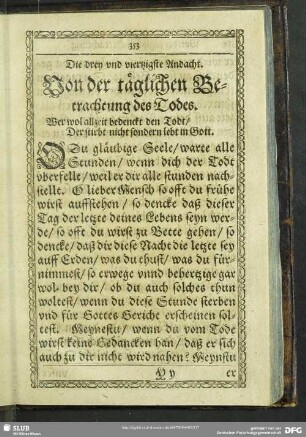 313
Die drey vnd viertzigste Andacht.
Von der täglichen Be-
trachtung des Todes.
Wer wol allzeit bedenckt den Todt/
Der stirbt nicht sondern lebt in Gott.
O Du gläubige Seele/ warte alle
Stunden/ wenn dich der Todt
vberfelle/ weil er dir alle stunden nach-
stelle. O lieber Mensch so offt du frühe
wirst auffstehen/ so dencke daß dieser
Tag der letzte deines Lebens seyn wer-
de/ so offt du wirst zu Bette gehen/ so
dencke/ daß dir diese Nacht die letzte sey
auff Erden/ was du thust/ was du für-
nimmest/ so erwege vnnd behertzige gar
wol bey dir/ ob du auch solches thun
woltest/ wenn du diese Stunde sterben
vnd für Gottes Gerichte erscheinen sol-
test. Meynestu/ wenn du vom Tode
wirst keine Gedancken han/ daß er sich
auch zu dir nicht wird nahen? Meynstu
Y y
er
SLUB
Wir führen Wissen.
gefördert von der
Deutschen Forschungsgemeinschaft
DFG